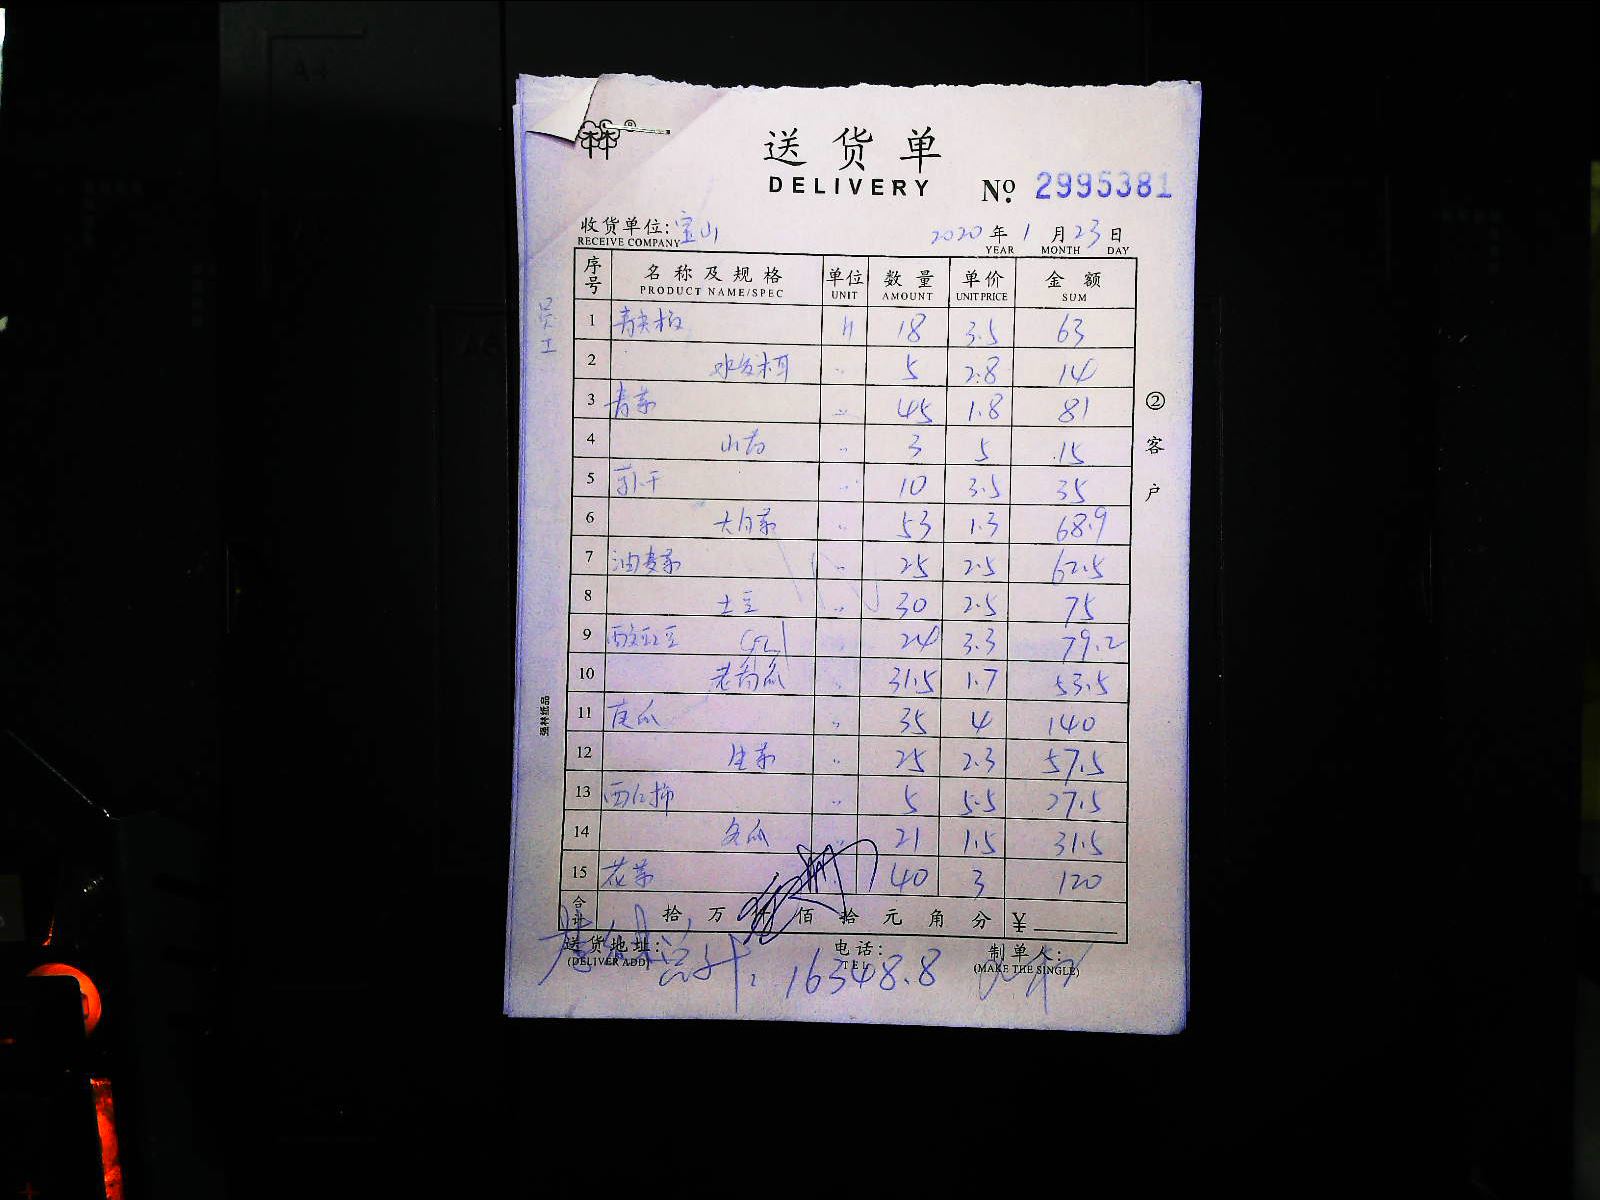 送货单
DELIVERY
№ 2995381
收货单位: 宝山
RECEIVE COMPANY
2020 年 1 月 23 日
YEAR MONTH DAY
序号 名称及规格 单位 数量 单价 金额
PRODUCT NAME/SPEC UNIT AMOUNT UNIT PRICE SUM
1 青尖椒 斤 18 3.5 63
2 水发木耳 〃 5 2.8 14
3 青菜 〃 45 1.8 81
4 山药 〃 3 5 15
5 干 〃 10 3.5 35
6 大白菜 〃 53 1.3 68.9
7 油麦菜 〃 25 2.5 62.5
8 土豆 〃 30 2.5 75
9 酸豇豆 24 3.3 79.2
10 老南瓜 〃 31.5 1.7 53.5
11 瓜 〃 35 4 140
12 生菜 〃 25 2.3 57.5
13 西红柿 〃 5 5.5 27.5
14 冬瓜 〃 21 1.5 31.5
15 花菜 40 3 120
合计 拾 万 仟 佰 拾 元 角 分 ¥
送货地址: 电话: 制单人:
(DELIVER ADD) TEL (MAKE THE SINGLE)
总计: 16348.8
员工
强林纸品
②客户